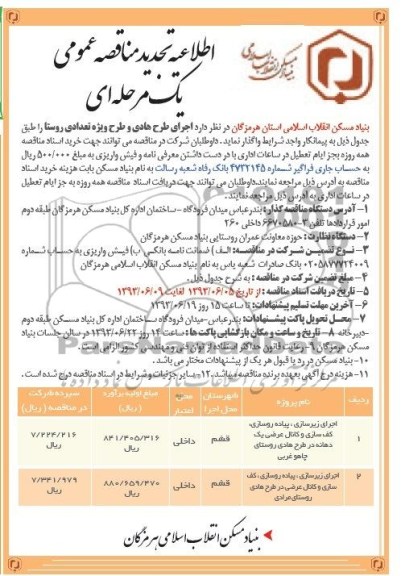 بنیاد مسکن انقلاب اسلامی
اطلاعیه تجدید مناقصه عمومی
یک مرحله ای
بنیاد مسکن انقلاب اسلامی استان هرمزگان در نظر دارد اجرای طرح هادی و طرح ویژه تعدادی روستا را طبق
جدول ذیل به پیمانکار واجد شرایط واگذار نماید. داوطلبان شرکت در مناقصه می توانند جهت خرید اسناد مناقصه
همه روزه بجز ایام تعطیل در ساعات اداری با در دست داشتن معرفی نامه و فیش واریزی به مبلغ ۵۰۰/۰۰۰ ریال
به حساب جاری فراگیر شماره ۴۷۲۲۱۴۵ بانک رفاه شعبه رسالت به نام بنیاد مسکن بابت هزینه خرید اسناد
مناقصه به آدرس ذیل مراجعه نمایند. داوطلبان می توانند جهت دریافت اسناد مناقصه همه روزه به جز ایام تعطیل
در ساعات اداری به آدرس ذیل مراجعه نمایند.
۱- آدرس دستگاه مناقصه گذار: بندرعباس میدان فرودگاه - ساختمان اداره کل بنیاد مسکن هرمزگان طبقه دوم
امور قراردادها تلفن ۳-۶۶۷۰۵۸۰ داخلی ۲۶۰
۲- دستگاه نظارت: حوزه معاونت عمران روستایی بنیاد مسکن هرمزگان
۳- نوع تضمین شرکت در مناقصه: الف) ضمانت نامه بانکی. ب) فیش واریزی به حساب شماره
۰۲۰۵۸۷۷۲۲۴۰۰۹ بانک صادرات شعبه یاس به نام بنیاد مسکن انقلاب اسلامی هرمزگان
۴- مبلغ تضمین شرکت در مناقصه: به شرح جدول ذیل.
۵- تاریخ دریافت اسناد مناقصه: از تاریخ ۱۳۹۳/۰۶/۰۵ لغایت ۱۳۹۳/۰۶/۰۹
۶- آخرین مهلت تسلیم پیشنهادات: تا ساعت ۱۵ روز ۱۳۹۳/۰۶/۱۹
۷- محل تحویل پاکت پیشنهادات: بندرعباس- میدان فرودگاه - ساختمان اداره کل بنیاد مسکن طبقه دوم
-دبیرخانه ۸- تاریخ و ساعت و مکان بازگشایی پاکت ها: ساعت ۱۲ روز ۱۳۹۳/۰۶/۲۲ در سالن جلسات بنیاد
مسکن هرمزگان ۹- رعایت قانون حداکثر استفاده از توان فنی و مهندسی کشور الزامی است.
۱۰- بنیاد مسکن در رد یا قبول هر یک از پیشنهادات مختار می باشد.
۱۱- هزینه درج آگهی بعهده برنده مناقصه میباشد. ۱۲- سایر جزئیات و شرایط در اسناد مناقصه درج شده است.
ردیف نام پروژه شهرستان محل اجرا محل اعتبار مبلغ اولیه برآورد (ریال) سپرده شرکت در مناقصه (ریال)
۱ اجرای زیرسازی، پیاده روسازی، کف سازی و کانال عرضی یک دهانه در طرح هادی روستای چاهو غربی قشم داخلی ۸۴۱/۴۰۵/۳۱۶ ریال ۷/۲۲۴/۲۱۶ ریال
۲ اجرای زیرسازی، پیاده روسازی، کف سازی و کانال عرضی در طرح هادی روستای مرادی قشم داخلی ۸۸۰/۶۵۹/۴۷۰ ریال ۷/۳۴۱/۹۷۹ ریال
بنیاد مسکن انقلاب اسلامی هرمزگان